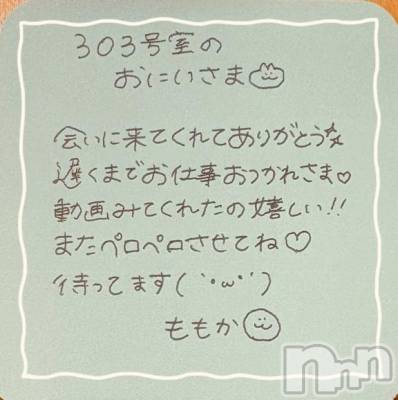 303号室の
おにいさま
会いに来てくれてありがとう
遅くまでお仕事おつかれさま♡
動画みてくれたの嬉しい!!
またペロペロさせてね♡
待ってます(｀・ω・´)
ももか